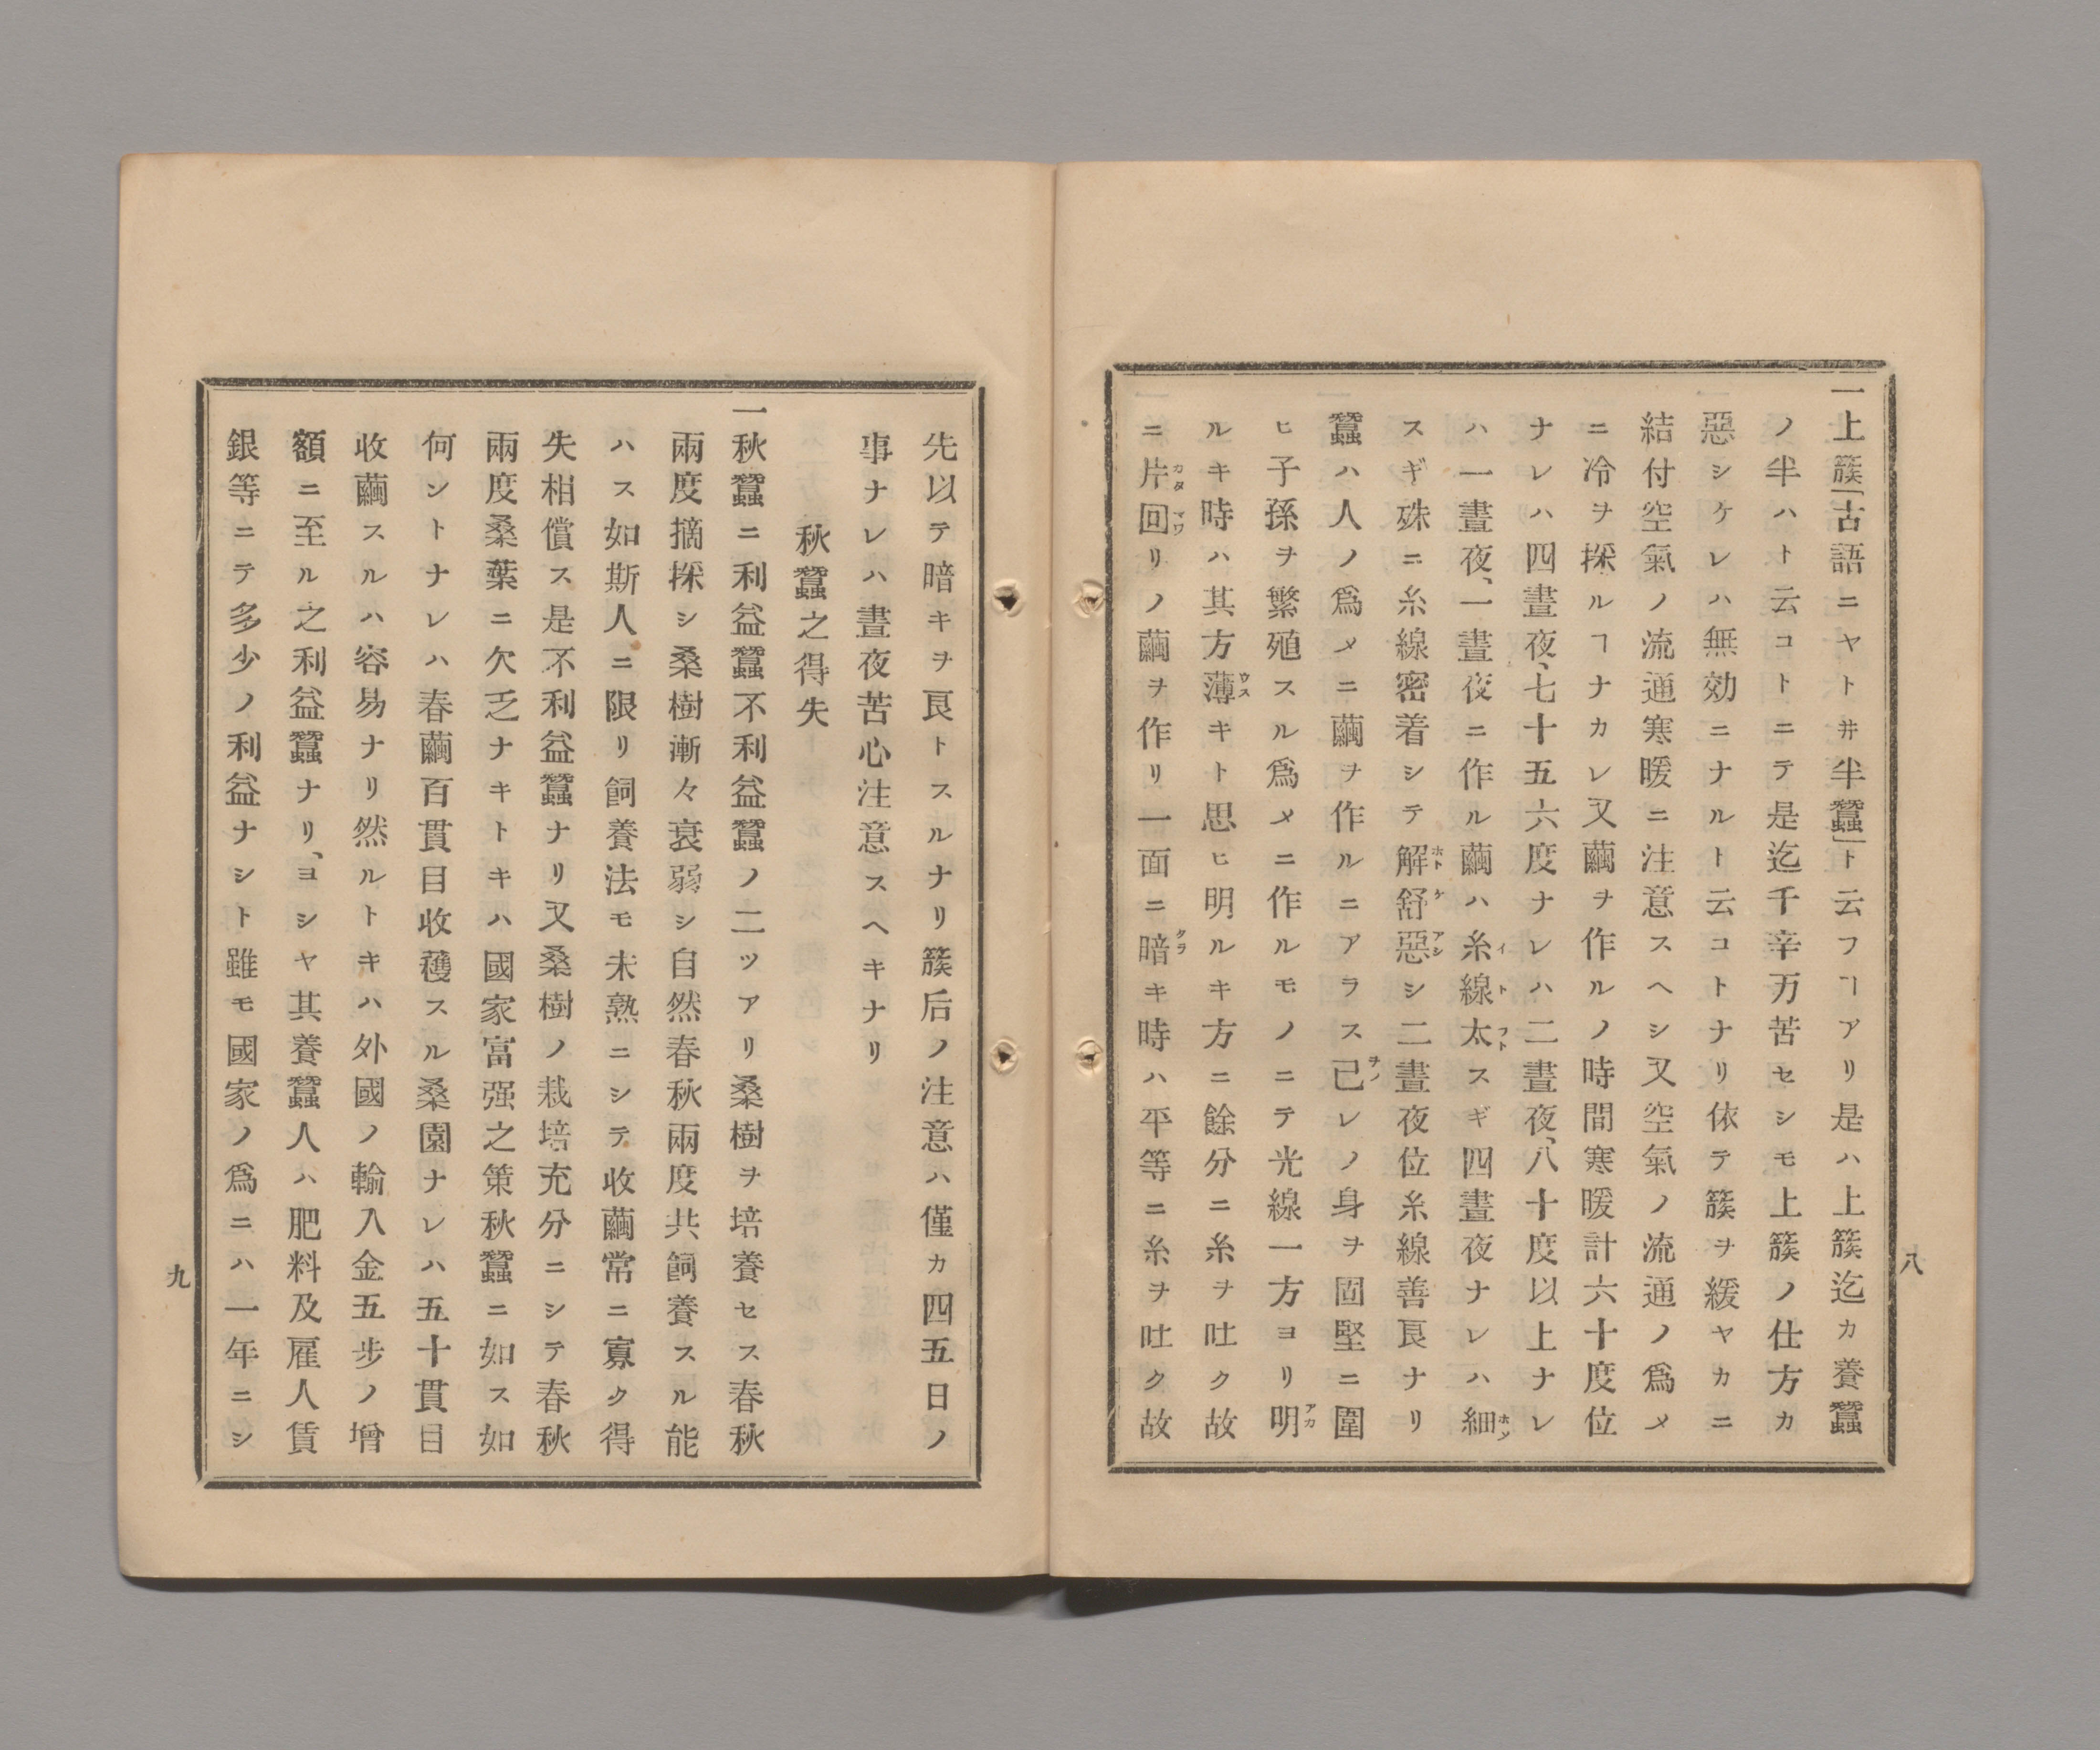 一上簇「古語ニヤト井半蠶」ト云フヿアリ是ハ上簇迄カ養蠶
ノ半ハト云コトニテ是迄千辛万苦セシモ上簇ノ仕方カ
惡シケレハ無効ニナルト云コトナリ依テ簇ヲ緩ヤカニ
結付空氣ノ流通寒暖ニ注意スヘシ又空氣ノ流通ノ爲メ
ニ冷ヲ採ルヿナカレ又繭ヲ作ルノ時間寒暖計六十度位
ナレハ四晝夜、七十五六度ナレハ二晝夜、八十度以上ナレ
ハ一晝夜、一晝夜ニ作ル繭ハ糸線太スギ四晝夜ナレハ細
スギ殊ニ糸線密着シテ解舒惡シ二晝夜位糸線善良ナリ
蠶ハ人ノ爲メニ繭ヲ作ルニアラス己レノ身ヲ固堅ニ圍
ヒ子孫ヲ繁殖スル爲メニ作ルモノニテ光線一方ヨリ明
ルキ時ハ其方薄キト思ヒ明ルキ方ニ餘分ニ糸ヲ吐ク故
ニ片回リノ繭ヲ作リ一面ニ暗キ時ハ平等ニ糸ヲ吐ク故
八
先以テ暗キヲ良トスルナリ簇后ノ注意ハ僅カ四五日ノ
事ナレハ晝夜苦心注意スヘキナリ
秋蠶之得失
一秋蠶ニ利益蠶不利益蠶ノ二ツアリ桑樹ヲ培養セス春秋
兩度摘採シ桑樹漸々衰弱シ自然春秋兩度共飼養スル能
ハス如斯人ニ限リ飼養法モ未熟ニシテ收繭常ニ寡ク得
失相償ス是不利益蠶ナリ又桑樹ノ栽培充分ニシテ春秋
兩度桑葉ニ欠乏ナキトキハ國家富强之策秋蠶ニ如ス如
何ントナレハ春繭百貫目收穫スル桑園ナレハ五十貫目
收繭スルハ容易ナリ然ルトキハ外國ノ輸入金五步ノ增
額ニ至ル之利益蠶ナリ、ヨシヤ其養蠶人ハ肥料及雇人賃
銀等ニテ多少ノ利益ナシト雖モ國家ノ爲ニハ一年ニシ
九